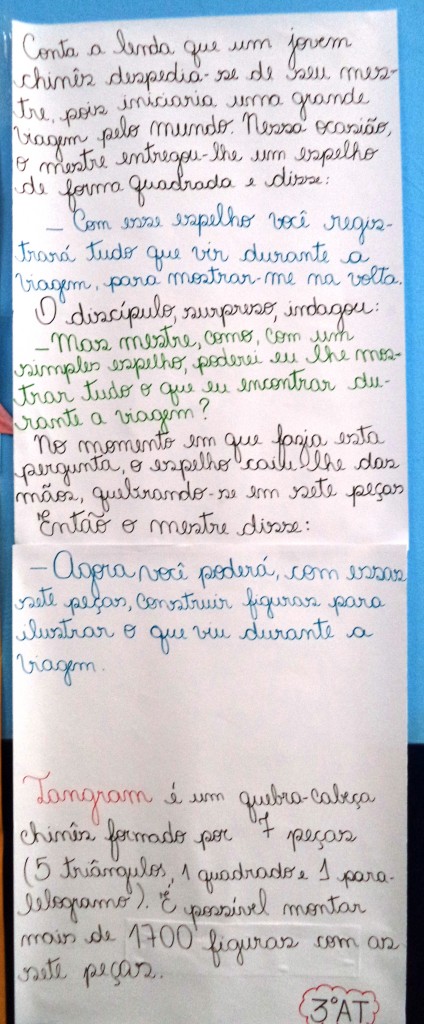 Conta a lenda que um jovem
chinês despedia-se de seu mes-
tre, pois iniciaria uma grande
viagem pelo mundo. Nessa ocasião,
o mestre entregou-lhe um espelho
de forma quadrada e disse:
– Com esse espelho você regis-
trará tudo que vir durante a
viagem, para mostrar-me na volta.
O discípulo, surpreso, indagou:
– Mas mestre, como, com um
simples espelho, poderei eu lhe mos-
trar tudo o que eu encontrar du-
rante a viagem?
No momento em que fazia esta
pergunta, o espelho caiu-lhe das
mãos, quebrando-se em sete peças
Então o mestre disse:
– Agora você poderá, com essas
sete peças, construir figuras para
ilustrar o que viu durante a
viagem.
Tangram é um quebra-cabeça
chinês formado por 7 peças
(5 triângulos, 1 quadrado e 1 para-
lelogramo). É possível montar
mais de 1700 figuras com as
sete peças.
3º AT.